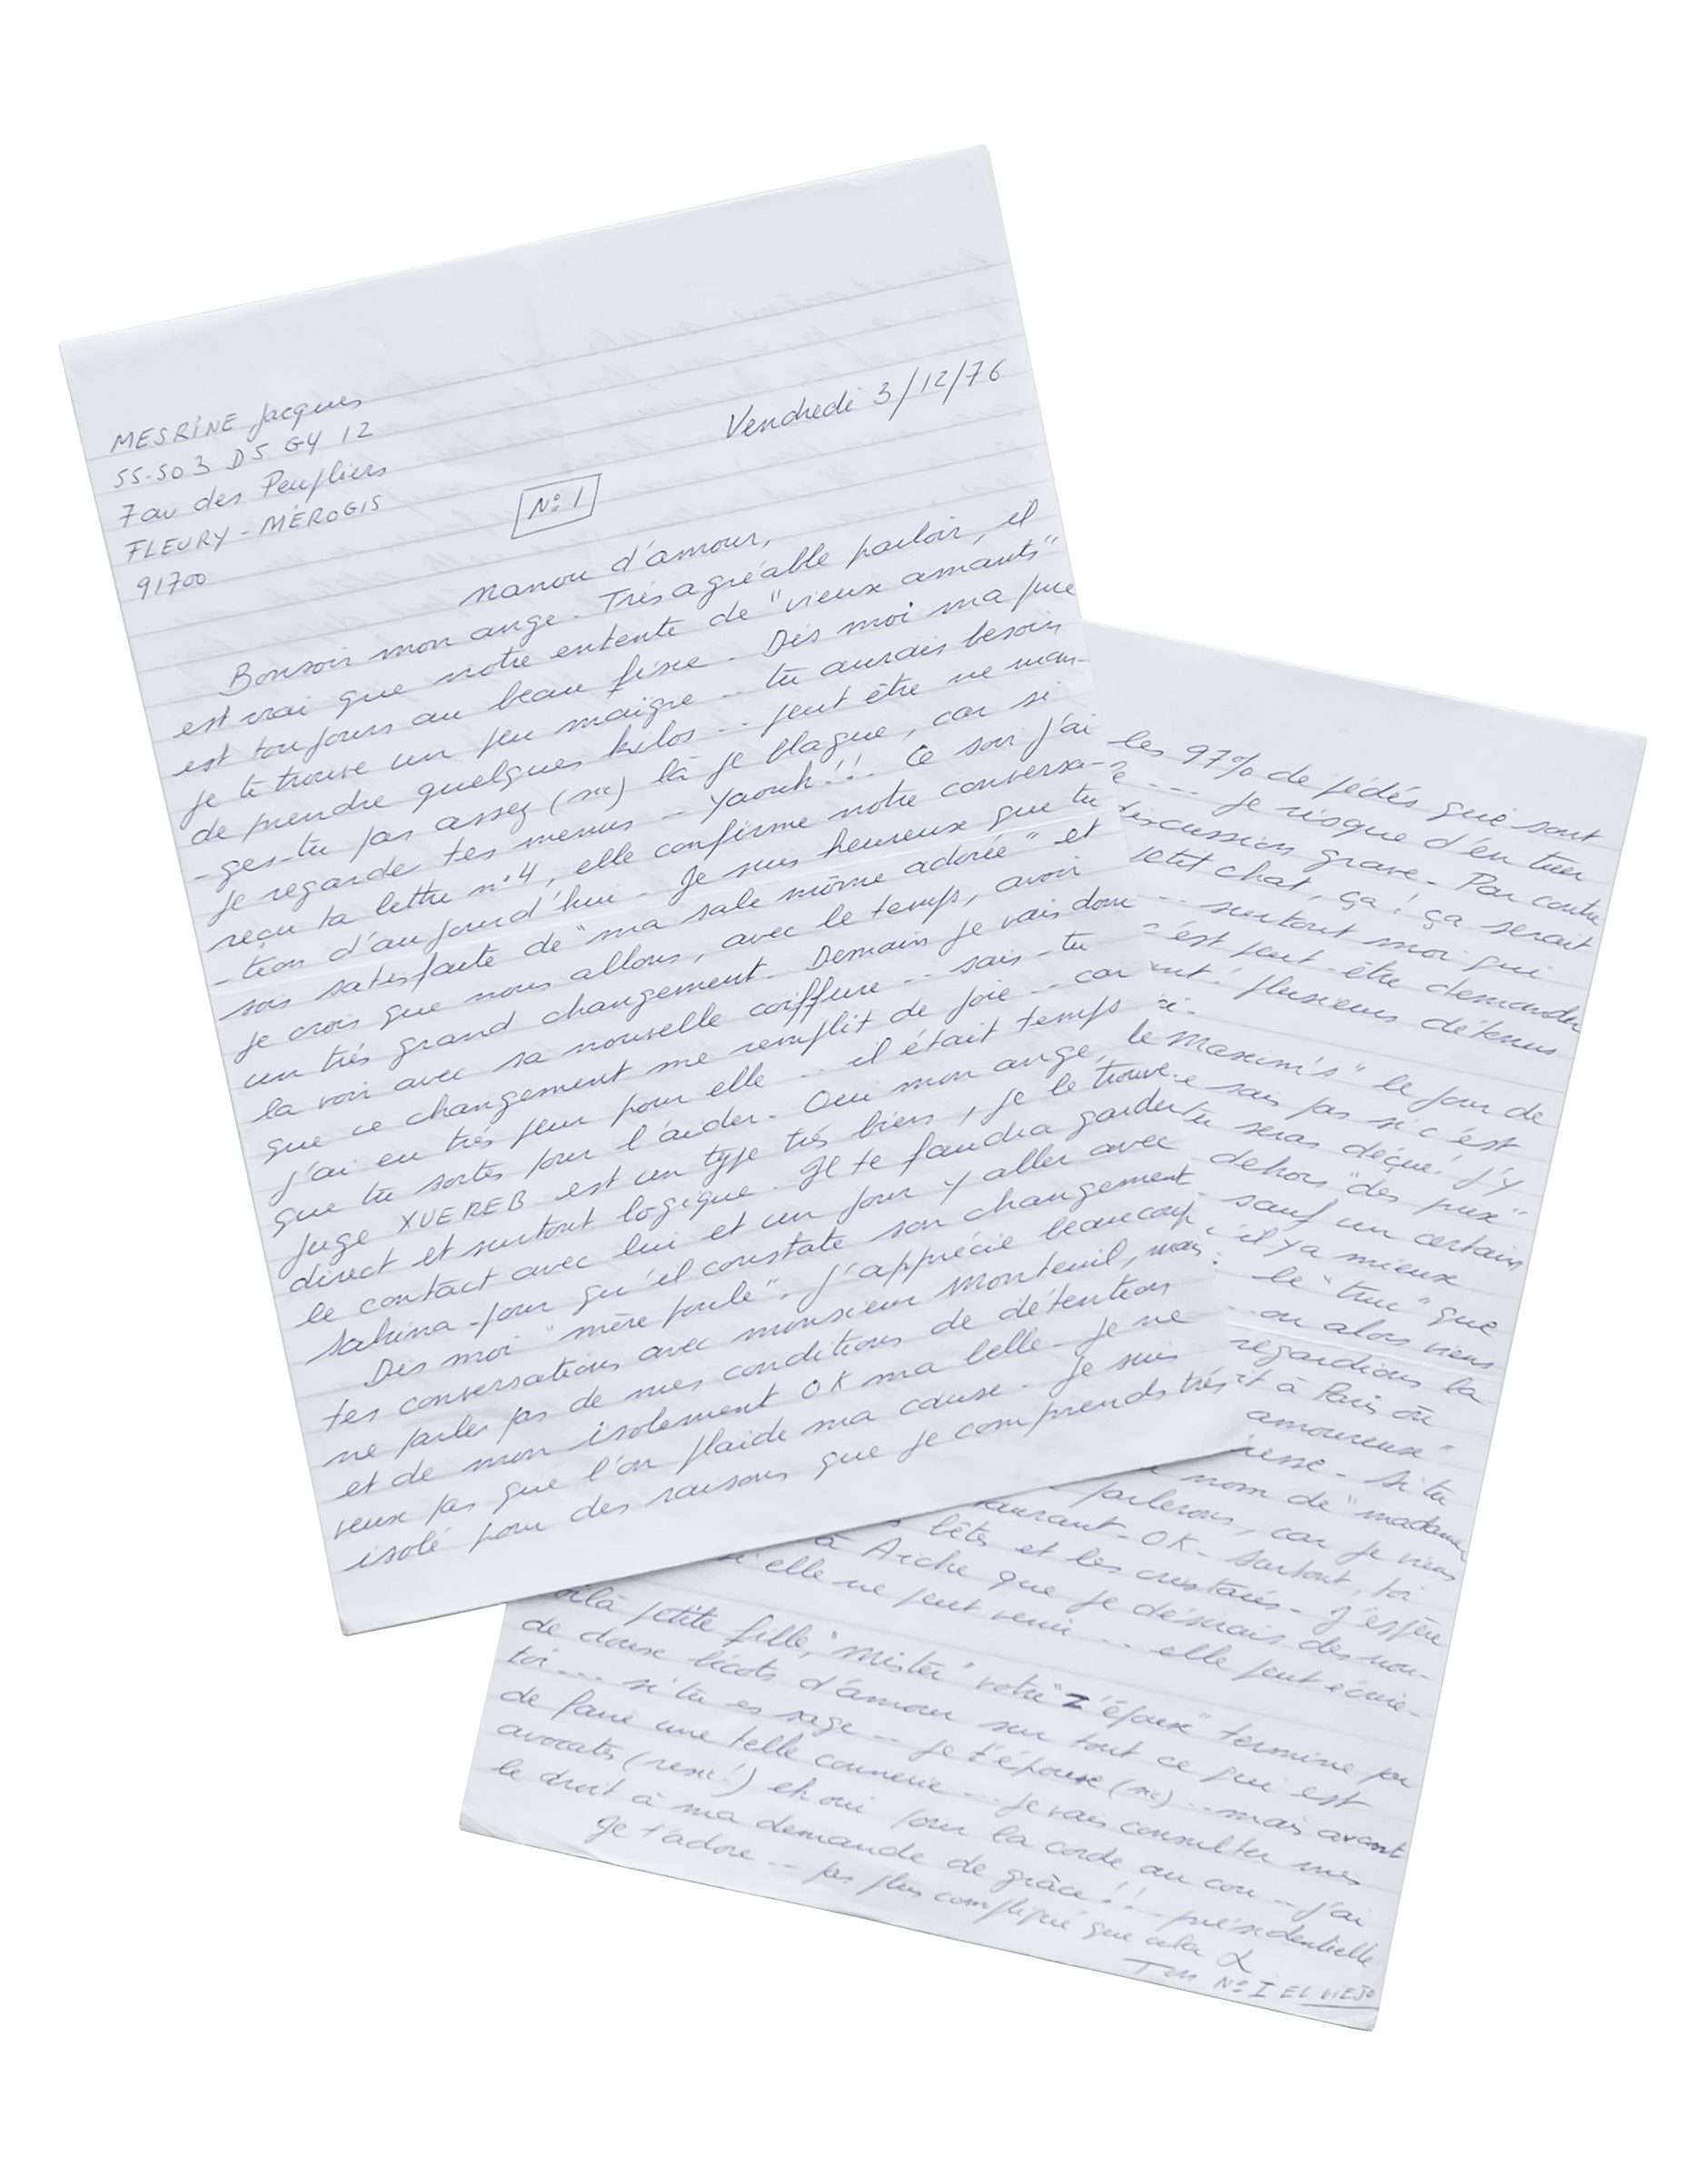 MESRINE Jacques
55-503 D5 G4 12
7 av des Peupliers
FLEURY-MÉROGIS
91700
Vendredi 3/12/76
N° 1
Nanou d'amour,
Bonsoir mon ange. Très agréable parloir, il
est vrai que notre entente de "vieux amants"
est toujours au beau fixe. Dis moi ma puce
je te trouve un peu maigre... tu aurais besoin
de prendre quelques kilos... peut être ne man-
-ges-tu pas assez (sic) là je blague, car si
je regarde tes menus... Yaouh!!! Ce soir j'ai
reçu ta lettre n°4, elle confirme notre conversa-
-tion d'aujourd'hui. Je suis heureux que tu
sois satisfaite de "ma sale môme adorée" et
je crois que nous allons, avec le temps, avoir
un très grand changement. Demain je vais donc
la voir avec sa nouvelle coiffure... sais-tu
que ce changement me remplit de joie... car
j'ai eu très peur pour elle... il était temps
que tu sortes pour l'aider. Oui mon ange, le
juge XUEREB est un type très bien, je le trouve
direct et surtout logique. Il te faudra garder
le contact avec lui et un jour y aller avec
Sabrina pour qu'il constate son changement
Dis moi "mère poule", j'apprécie beaucoup
tes conversations avec monsieur Monteuil, mais
ne parles pas de mes conditions de détention
et de mon isolement OK ma belle. Je ne
veux pas que l'on plaide ma cause. Je suis
isolé pour des raisons que je comprends très
les 97% de pédés qui sont
je risque d'en tuer
discussion grave. Par contre
petit chat, ça! ça serait
... surtout moi qui
c'est peut-être demander
plusieurs détenus
Maxim's" le jour de
sais pas si c'est
tu seras déçue! J'y
dehors "des prix"
sauf un certain
il y a mieux
le "truc" que
... ou alors viens
regardions la
à Paris où
amoureux"
si tu
nom de "madame
parlerons, car je viens
OK. Surtout, toi
bêtes et les crustacés. J'espère
à Aicha que je désirais des nou-
elle ne peut venir... elle peut écrire.
Voilà petite fille, "Mister" votre "Z'époux" termine par
de doux bécots d'amour sur tout ce qui est
toi... si tu es sage... je t'épouse (sic)... mais avant
de faire une telle connerie... je vais consulter mes
avocats (rire!) eh oui pour la corde au cou... j'ai
le droit à ma demande de grâce!! présidentielle
Je t'adore... pas plus compliqué que cela
Ton N° I EL VIEJO